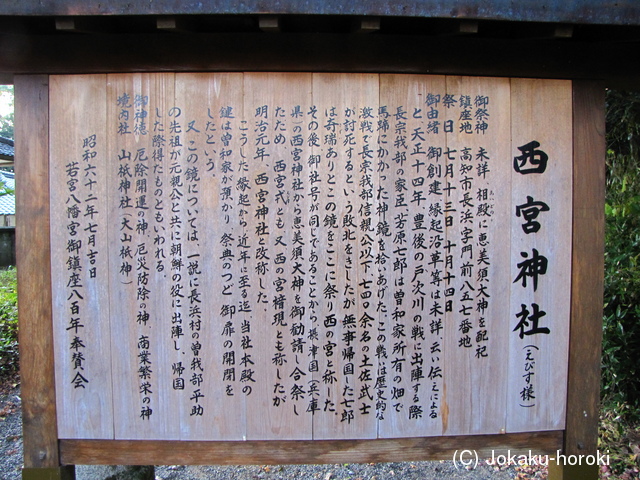 西宮神社(えびす様)
御祭神 未詳 相殿に恵美須大神を配祀
鎮座地 高知市長浜字門前八五七番地
祭日 七月十三日、十月十四日
御由緒 御創建、縁起沿革等は未詳、云い伝えによる
と、天正十四年、豊後の戸次川の戦に出陣する際
長宗我部の家臣、芳原七郎は曽和家所有の畑で
馬蹄にかかった神鏡を拾いあげた。この戦は歴史的な
激戦で長宗我部信親公以下、七四〇余名の土佐武士
が討死するという敗北をきしたが、無事帰国した七郎
は奇瑞ありとこの鏡をここに祭り西の宮と称した。
その後、御社号が同じであることから、摂津国(兵庫
県)の西宮神社から恵美須大神を御勧請し合祭し
たため、西宮弐とも、又、西の宮権現とも称したが
明治元年、西宮神社と改称した。
こうした縁起から近年に至る迄、当社本殿の
鍵は曽和家が預かり、祭典のつど、御扉の開閉を
したという。
又、この鏡については、一説に長浜村の曽我部平助
の先祖が元親公と共に朝鮮の役に出陣し、帰国
した際得たものともいわれる。
御神徳 厄除開運の神、厄災防除の神、商業繁栄の神
境内社 山祇神社(大山祇神)
昭和六十二年七月吉日
若宮八幡宮御鎮座八百年奉賛会
(C) Jokaku-horoki